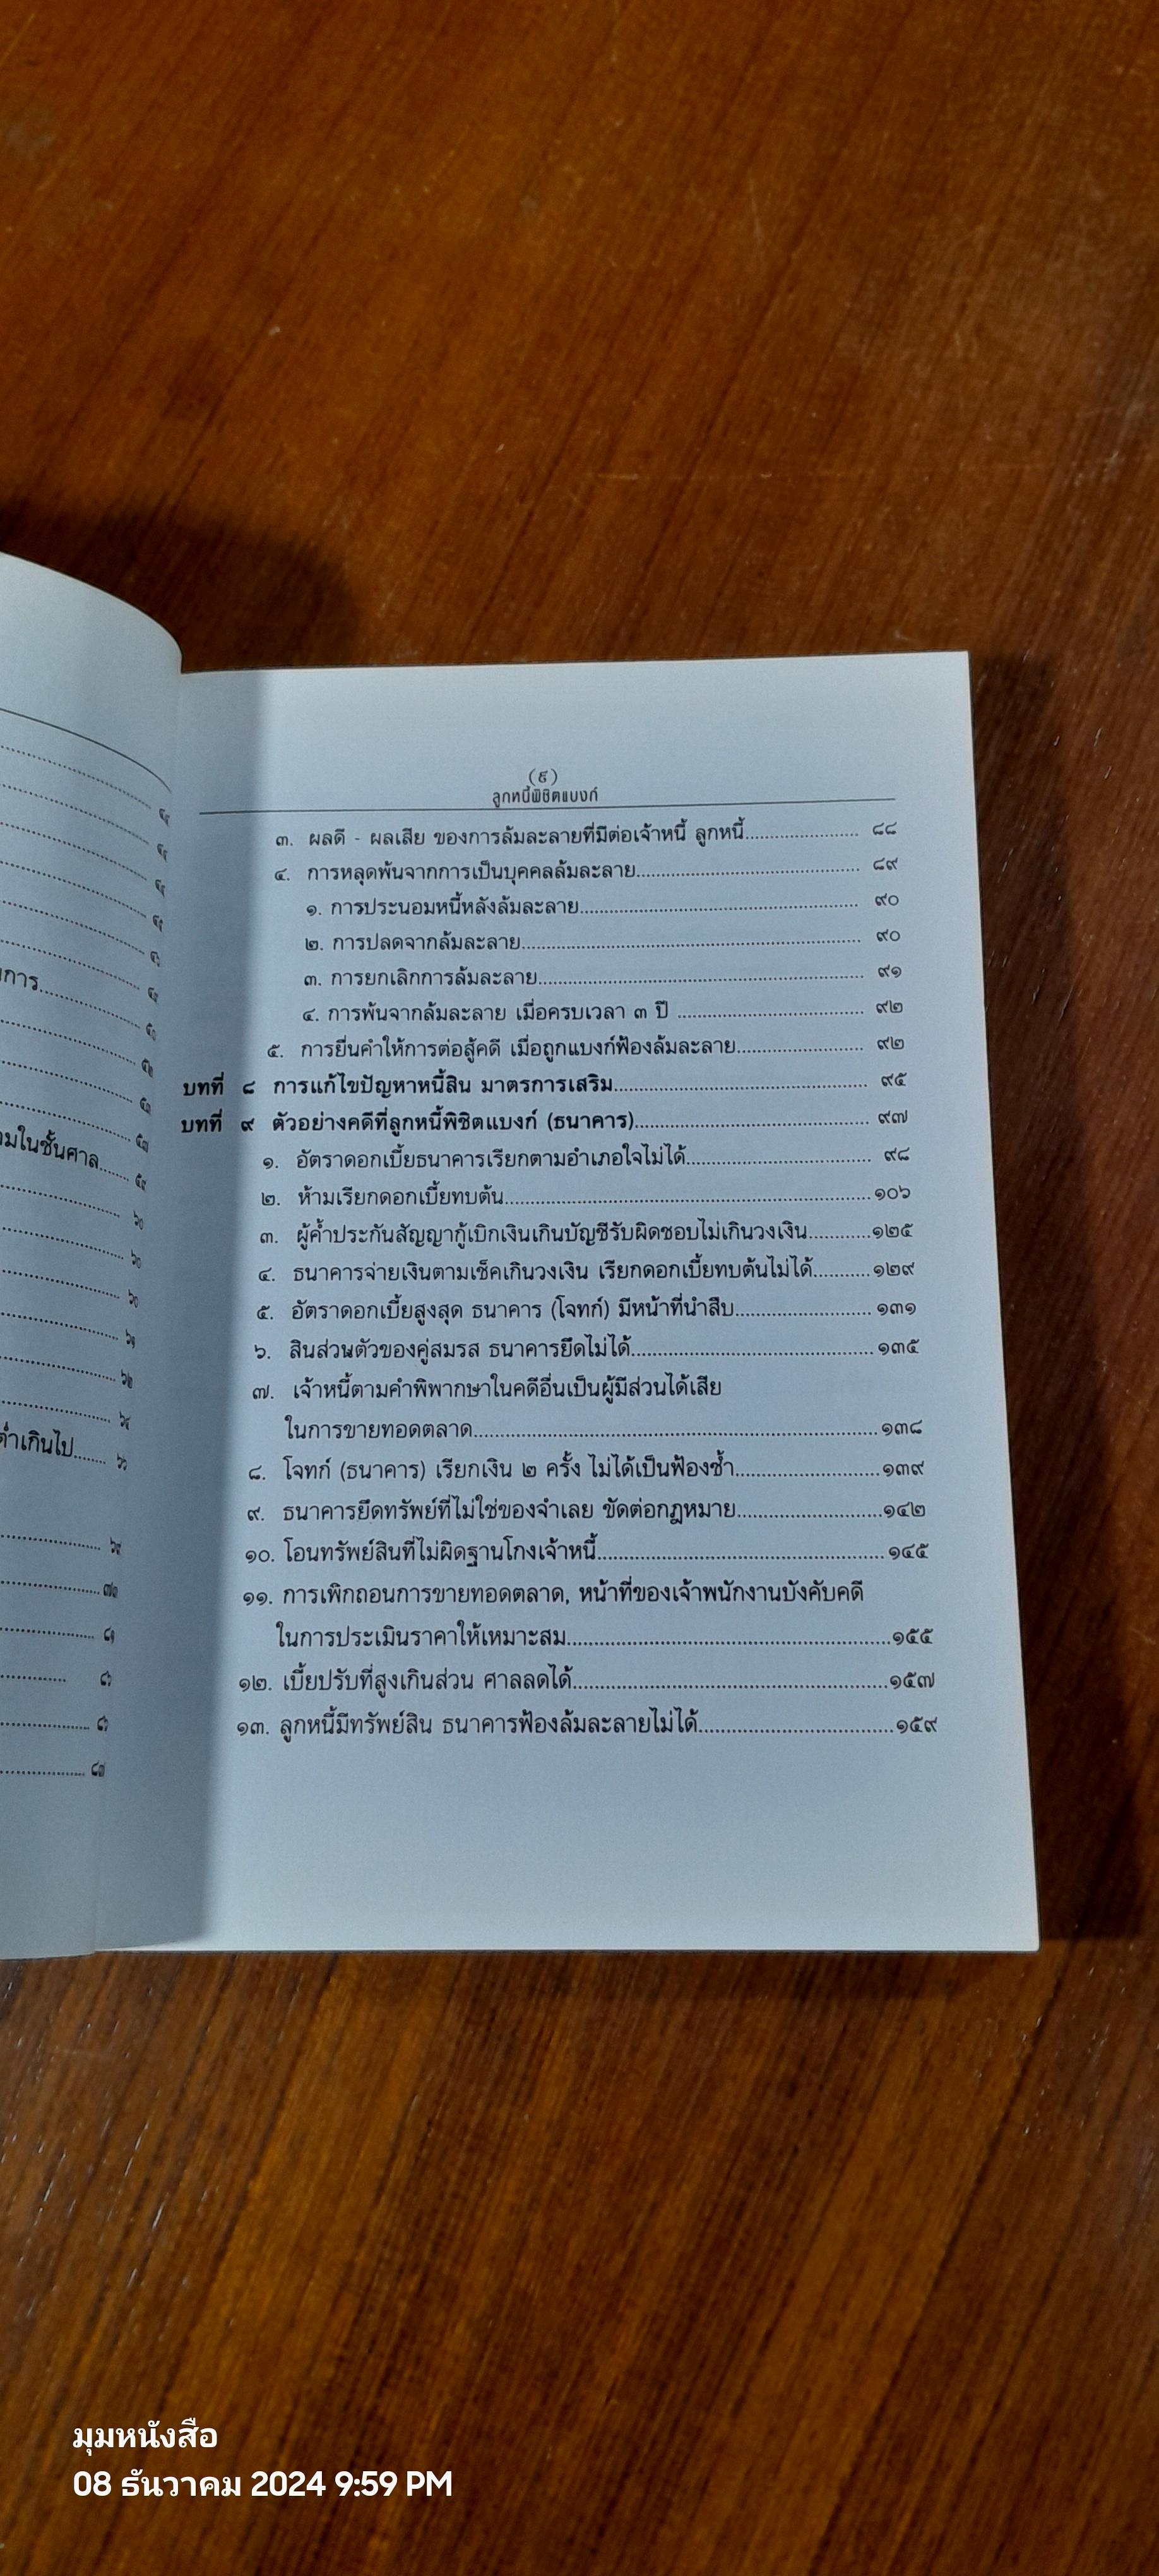 ยการ
มในชั้นศาล
ต่ำเกินไป
(๙)
ลูกหนี้พิชิตแบงก์
๓. ผลดี - ผลเสีย ของการล้มละลายที่มีต่อเจ้าหนี้ ลูกหนี้ ๘๘
๔. การหลุดพ้นจากการเป็นบุคคลล้มละลาย ๘๙
๑. การประนอมหนี้หลังล้มละลาย ๙๐
๒. การปลดจากล้มละลาย ๙๐
๓. การยกเลิกการล้มละลาย ๙๑
๔. การพ้นจากล้มละลาย เมื่อครบเวลา ๓ ปี ๙๒
๕. การยื่นคำให้การต่อสู้คดี เมื่อถูกแบงก์ฟ้องล้มละลาย ๙๒
บทที่ ๘ การแก้ไขปัญหาหนี้สิน มาตรการเสริม ๙๕
บทที่ ๙ ตัวอย่างคดีที่ลูกหนี้พิชิตแบงก์ (ธนาคาร) ๙๗
๑. อัตราดอกเบี้ยธนาคารเรียกตามอำเภอใจไม่ได้ ๙๘
๒. ห้ามเรียกดอกเบี้ยทบต้น ๑๐๖
๓. ผู้ค้ำประกันสัญญากู้เบิกเงินเกินบัญชีรับผิดชอบไม่เกินวงเงิน ๑๒๕
๔. ธนาคารจ่ายเงินตามเช็คเกินวงเงิน เรียกดอกเบี้ยทบต้นไม่ได้ ๑๒๙
๕. อัตราดอกเบี้ยสูงสุด ธนาคาร (โจทก์) มีหน้าที่นำสืบ ๑๓๑
๖. สินส่วนตัวของคู่สมรส ธนาคารยึดไม่ได้ ๑๓๕
๗. เจ้าหนี้ตามคำพิพากษาในคดีอื่นเป็นผู้มีส่วนได้เสีย
ในการขายทอดตลาด ๑๓๘
๘. โจทก์ (ธนาคาร) เรียกเงิน ๒ ครั้ง ไม่ได้เป็นฟ้องซ้ำ ๑๓๙
๙. ธนาคารยึดทรัพย์ที่ไม่ใช่ของจำเลย ขัดต่อกฎหมาย ๑๔๒
๑๐. โอนทรัพย์สินที่ไม่ผิดฐานโกงเจ้าหนี้ ๑๔๕
๑๑. การเพิกถอนการขายทอดตลาด, หน้าที่ของเจ้าพนักงานบังคับคดี
ในการประเมินราคาให้เหมาะสม ๑๕๕
๑๒. เบี้ยปรับที่สูงเกินส่วน ศาลลดได้ ๑๕๗
๑๓. ลูกหนี้มีทรัพย์สิน ธนาคารฟ้องล้มละลายไม่ได้ ๑๕๙
มุมหนังสือ
08 ธันวาคม 2024 9:59 PM